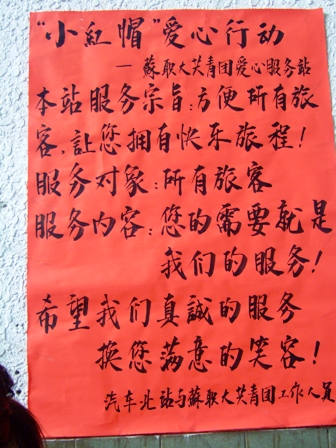 “小红帽”爱心行动
— 蘇职大共青团爱心服务站
本站服务宗旨:方便所有旅
客,讓您拥有快乐旅程!
服务对象:所有旅客
服务内容:您的需要就是
我们的服务!
希望我们真誠的服务
换您满意的笑容!
汽车北站与蘇职大共青团工作人员